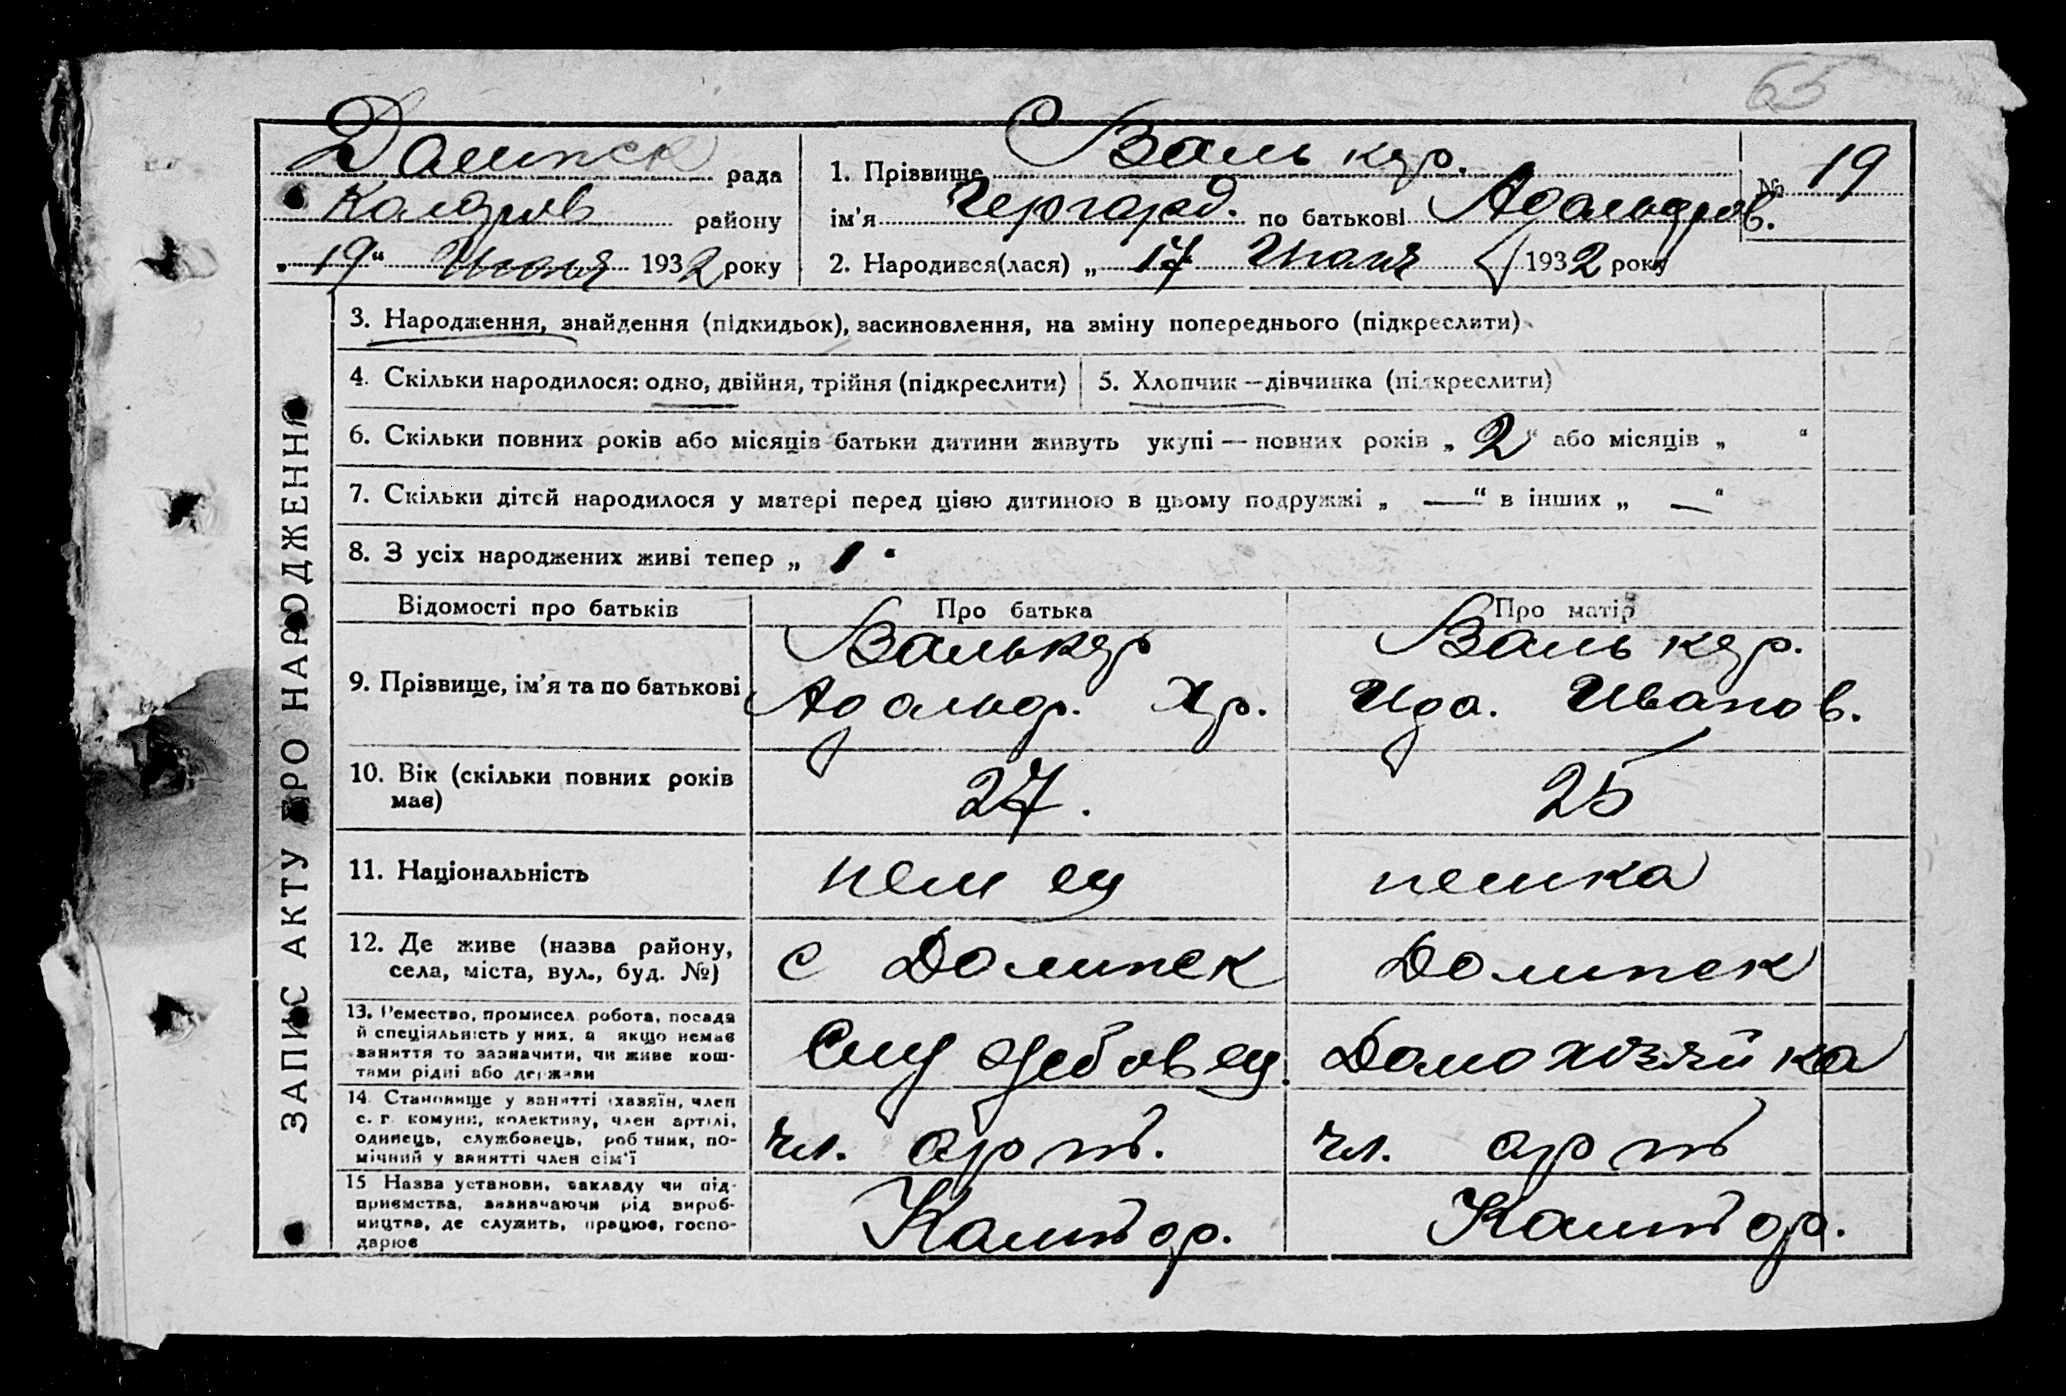 65
Долинск рада
района
„19“ Июля 1932 року
1. Прізвище Валькер.
ім’я Гергард. по батькові Адольфов.
№ 19
2. Народився(лася) „17 Июля 1932 року
ЗАПИС АКТУ ПРО НАРОДЖЕННЯ
3. Народження, знайдення (підкидьок), засиновлення, на зміну попереднього (підкреслити)
4. Скільки народилося: одно, двійня, трійня (підкреслити)
5. Хлопчик — дівчинка (підкреслити)
6. Скільки повних років або місяців батьки дитини живуть укупі — повних років „2“ або місяців „ “
7. Скільки дітей народилося у матері перед цією дитиною в цьому подружжі „—“ в інших „—“
8. З усіх народжених живі тепер „1“
Відомості про батьків Про батька Про матір
9. Прізвище, ім’я та по батькові
Валькер
Адольф. Хр.
Валькер.
Ида. Иванов.
10. Вік (скільки повних років
має)
27.
25
11. Національність
немец
немка
12. Де живе (назва району,
села, міста, вул., буд. №)
с Долинск
Долинск
13. Ремество, промисел, робота, посада
й спеціяльність у них, а якщо немає
заняття то зазначити, чи живе кош-
тами рідні або держави
Служебовец.
Домохозяйка
14. Становище у занятті (хазяїн, член
с. г. комуни, колективу, член артілі,
одинець, службовець, робітник, по-
мічний у занятті член сім’ї
чл. арт.
чл. арт
15 Назва установи, закладу чи під-
приємства, зазначаючи рід вироб-
ництва, де служить, працює, госпо-
дарює